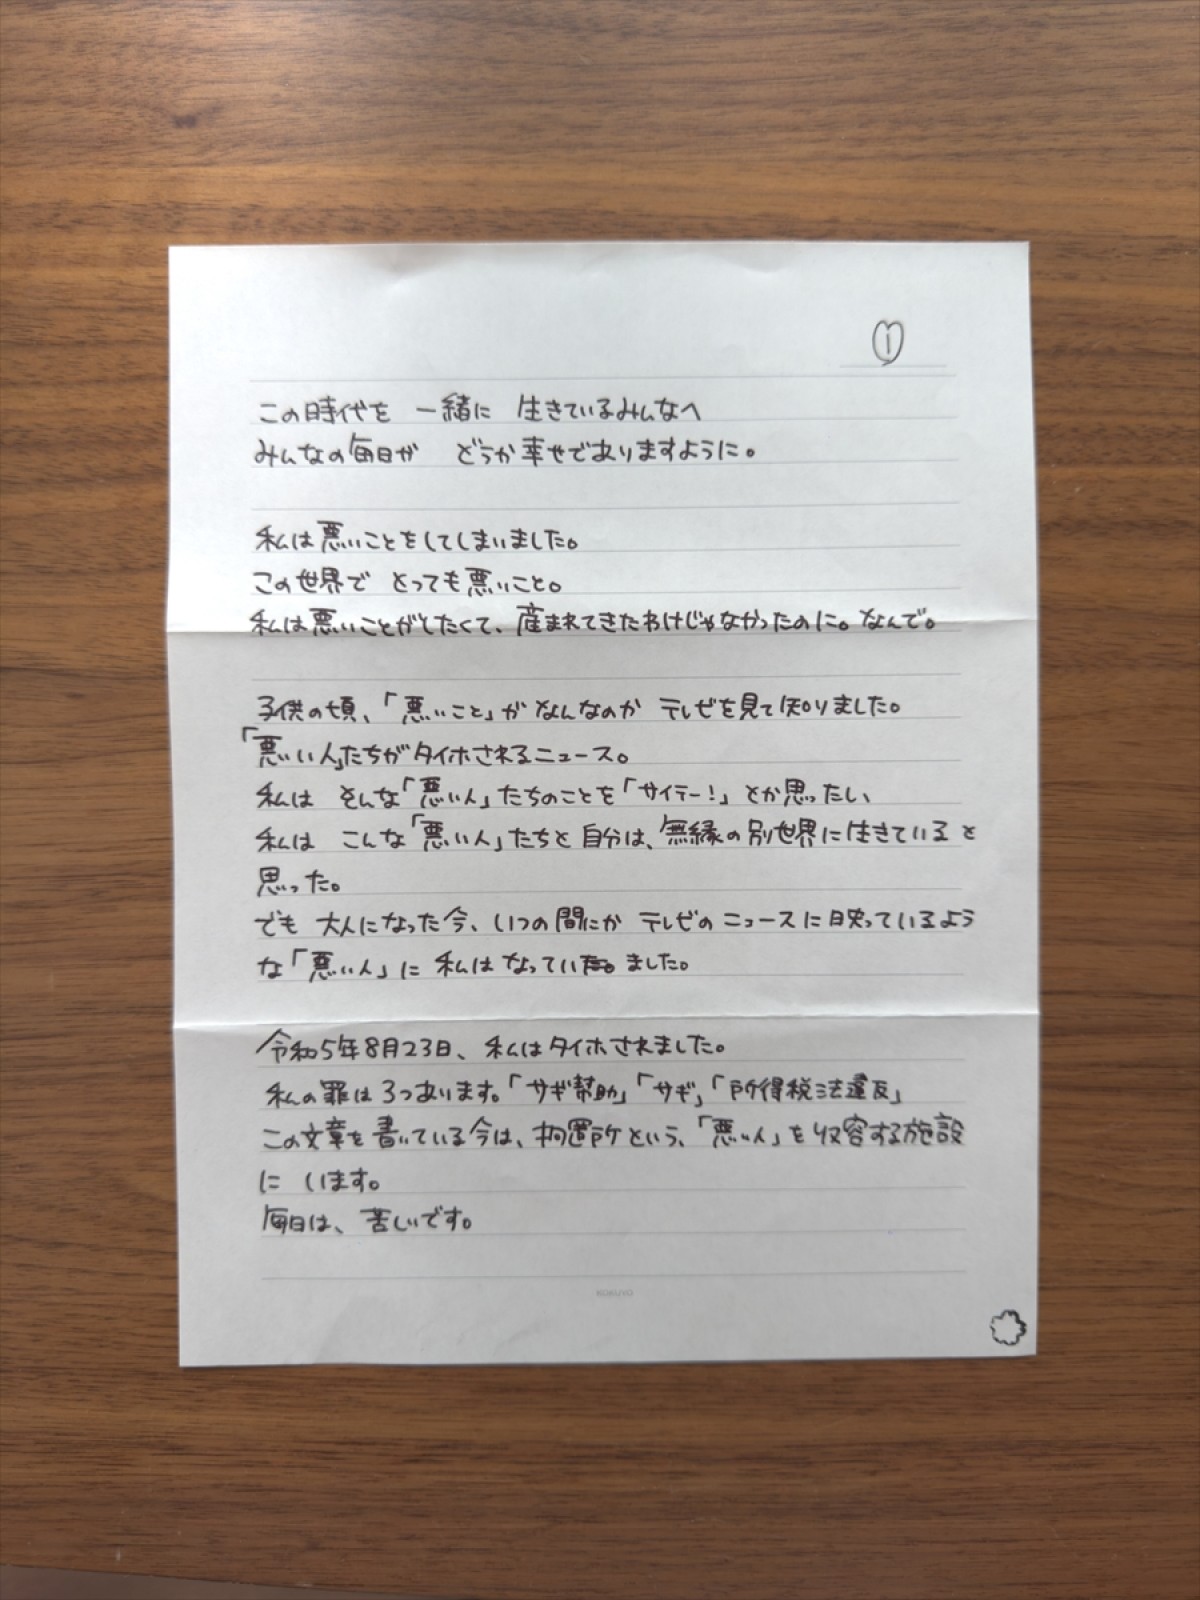 ①
この時代を 一緒に 生きているみんなへ
みんなの毎日が どうか幸せでありますように。
私は悪いことをしてしまいました。
この世界で とっても悪いこと。
私は悪いことがしたくて、産まれてきたわけじゃなかったのに。なんで。
子供の頃、「悪いこと」がなんなのか テレビを見て知りました。
「悪い人」たちがタイホされるニュース。
私は そんな「悪い人」たちのことを「サイテー!」とか思ったし、
私は こんな「悪い人」たちと自分は、無縁の別世界に生きていると
思った。
でも 大人になった今、いつの間にか テレビのニュースに映っているよう
な「悪い人」に 私はなっていました。
令和5年8月23日、私はタイホされました。
私の罪は3つあります。「サギ幇助」「サギ」「所得税法違反」
この文章を書いている今は、拘置所という、「悪い人」を収容する施設
に います。
毎日は、苦しいです。
KOKUYO